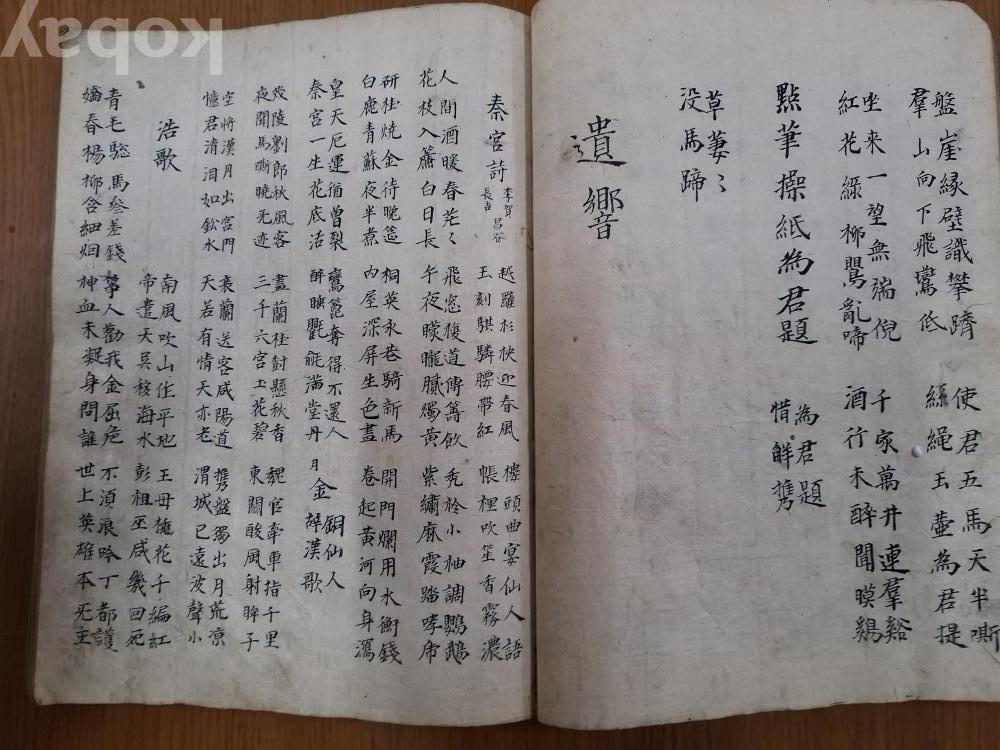 盤崖緣壁識攀躋
羣山向下飛鸞低
使君五馬天半嘶
絲繩玉壺為君提
坐来一望無端倪
紅花綠柳鶯亂啼
千家萬井連羣谿
酒行未醉聞暯鷄
點筆操紙為君題
為君題
惜解携
草萋〻
没馬蹄
遺響
秦宮詩
李賀 昌谷
長吉
越羅衫袂迎春風
玉刻騏驎腰帶紅
樓頭曲宴仙人語
帳裡吹笙香霧濃
人間酒暖春茫〻
花枝入簾白日長
飛窓複道傳籌飲
午夜朦朧膩燭黃
禿衿小袖調鸚鵡
紫繡麻霞踏哮虎
研桂燒金待曉筵
白鹿青蘇夜半煮
桐英永巷騎新馬
內屋深屏生色畫
開門爛用水衡錢
卷起黃河向身瀉
皇天厄運猶曾裂
秦宮一生花底活
鸞篦奪得不還人
醉睡氍毹滿堂丹
月
金銅仙人
辭漢歌
茂陵劉郎秋風客
夜聞馬嘶曉无迹
畫蘭桂封懸秋香
三千六宮玉花碧
魏官牽車指千里
東關酸風射眸子
空將漢月出宮門
憶君清泪如鈆水
衰蘭送客咸陽道
天若有情天亦老
携盤獨出月荒凉
渭城已遠波聲小
浩歌
南風吹山作平地
帝遣天吳移海水
王母桃花千編紅
彭祖巫咸幾回死
青毛驄馬參差錢
嬌春楊柳含細烟
箏人勸我金屈卮
神血未凝身問誰
不須浪吟丁都護
世上英雄本无主
kobay